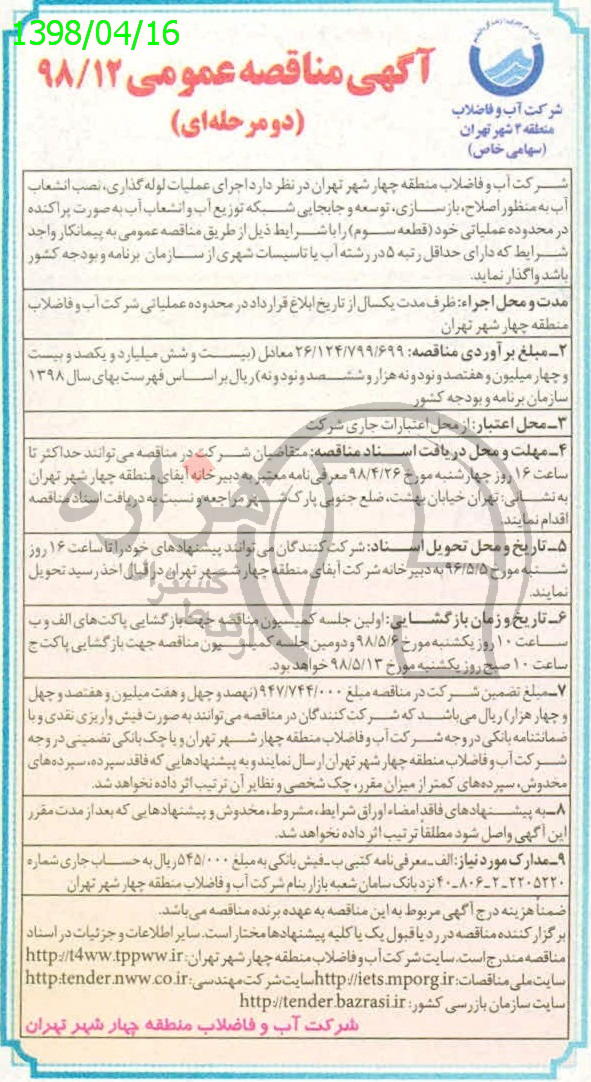 1398/04/16
شرکت آب و فاضلاب
منطقه ۴ شهر تهران
(سهامی خاص)
آگهی مناقصه عمومی ۹۸/۱۲
(دو مرحله‌ای)
شرکت آب و فاضلاب منطقه چهار شهر تهران در نظر دارد اجرای عملیات لوله گذاری، نصب انشعاب
آب به منظور اصلاح، بازسازی، توسعه و جابجایی شبکه توزیع آب و انشعاب آب به صورت پراکنده
در محدوده عملیاتی خود (قطعه سوم) را با شرایط ذیل از طریق مناقصه عمومی به پیمانکار واجد
شرایط که دارای حداقل رتبه ۵ در رشته آب یا تاسیسات شهری از سازمان برنامه و بودجه کشور
باشد واگذار نماید.
مدت و محل اجراء: ظرف مدت یکسال از تاریخ ابلاغ قرارداد در محدوده عملیاتی شرکت آب و فاضلاب
منطقه چهار شهر تهران
۲ـ مبلغ برآوردی مناقصه: ۲۶/۱۲۴/۷۹۹/۶۹۹ معادل (بیست و شش میلیارد و یکصد و بیست
و چهار میلیون و هفتصد و نود و نه هزار و ششصد و نود و نه) ریال بر اساس فهرست بهای سال ۱۳۹۸
سازمان برنامه و بودجه کشور
۳ـ محل اعتبار: از محل اعتبارات جاری شرکت
۴ـ مهلت و محل دریافت اسناد مناقصه: متقاضیان شرکت در مناقصه می توانند حداکثر تا
ساعت ۱۶ روز چهارشنبه مورخ ۹۸/۴/۲۶ معرفی نامه معتبر به دبیرخانه آبفای منطقه چهار شهر تهران
به نشانی: تهران خیابان بهشت، ضلع جنوبی پارک شهر مراجعه و نسبت به دریافت اسناد مناقصه
اقدام نمایند.
۵ـ تاریخ و محل تحویل اسناد: شرکت کنندگان می توانند پیشنهادهای خود را تا ساعت ۱۶ روز
شنبه مورخ ۹۶/۵/۵ به دبیرخانه شرکت آبفای منطقه چهار شهر تهران در قبال اخذ رسید تحویل
نمایند.
۶ـ تاریخ و زمان بازگشایی: اولین جلسه کمیسیون مناقصه جهت بازگشایی پاکت‌های الف و ب
ساعت ۱۰ روز یکشنبه مورخ ۹۸/۵/۶ و دومین جلسه کمیسیون مناقصه جهت بازگشایی پاکت ج
ساعت ۱۰ صبح روز یکشنبه مورخ ۹۸/۵/۱۳ خواهد بود.
۷ـ مبلغ تضمین شرکت در مناقصه مبلغ ۹۴۷/۷۴۴/۰۰۰ (نهصد و چهل و هفت میلیون و هفتصد و چهل
و چهار هزار) ریال می باشد که شرکت کنندگان در مناقصه می توانند به صورت فیش واریزی نقدی و با
ضمانتنامه بانکی در وجه شرکت آب و فاضلاب منطقه چهار شهر تهران و یا چک بانکی تضمینی در وجه
شرکت آب و فاضلاب منطقه چهار شهر تهران ارسال نمایند و به پیشنهادهایی که فاقد سپرده، سپرده‌های
مخدوش، سپرده‌های کمتر از میزان مقرر، چک شخصی و نظایر آن ترتیب اثر داده نخواهد شد.
۸ـ به پیشنهادهای فاقد امضاء اوراق شرایط، مشروط، مخدوش و پیشنهادهایی که بعد از مدت مقرر
این آگهی واصل شود مطلقاً ترتیب اثر داده نخواهد شد.
۹ـ مدارک مورد نیاز: الف ـ معرفی نامه کتبی ب ـ فیش بانکی به مبلغ ۵۴۵/۰۰۰ ریال به حساب جاری شماره
۲۲۰۵۲۲۰ـ۲ـ۸۰۶ـ۴۰ نزد بانک سامان شعبه بازار بنام شرکت آب و فاضلاب منطقه چهار شهر تهران
ضمناً هزینه درج آگهی مربوط به این مناقصه به عهده برنده مناقصه می باشد.
برگزار کننده مناقصه در رد یا قبول یک یا کلیه پیشنهادها مختار است. سایر اطلاعات و جزئیات در اسناد
مناقصه مندرج است. سایت شرکت آب و فاضلاب منطقه چهار شهر تهران: http://t4ww.tppww.ir
سایت ملی مناقصات: http://iets.mporg.ir سایت شرکت مهندسی: http:tender.nww.co.ir
سایت سازمان بازرسی کشور: http://tender.bazrasi.ir
شرکت آب و فاضلاب منطقه چهار شهر تهران